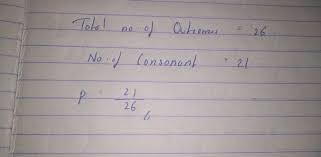 Total no of Outcomes = 26
No. of Consonant = 21
P = 21/26